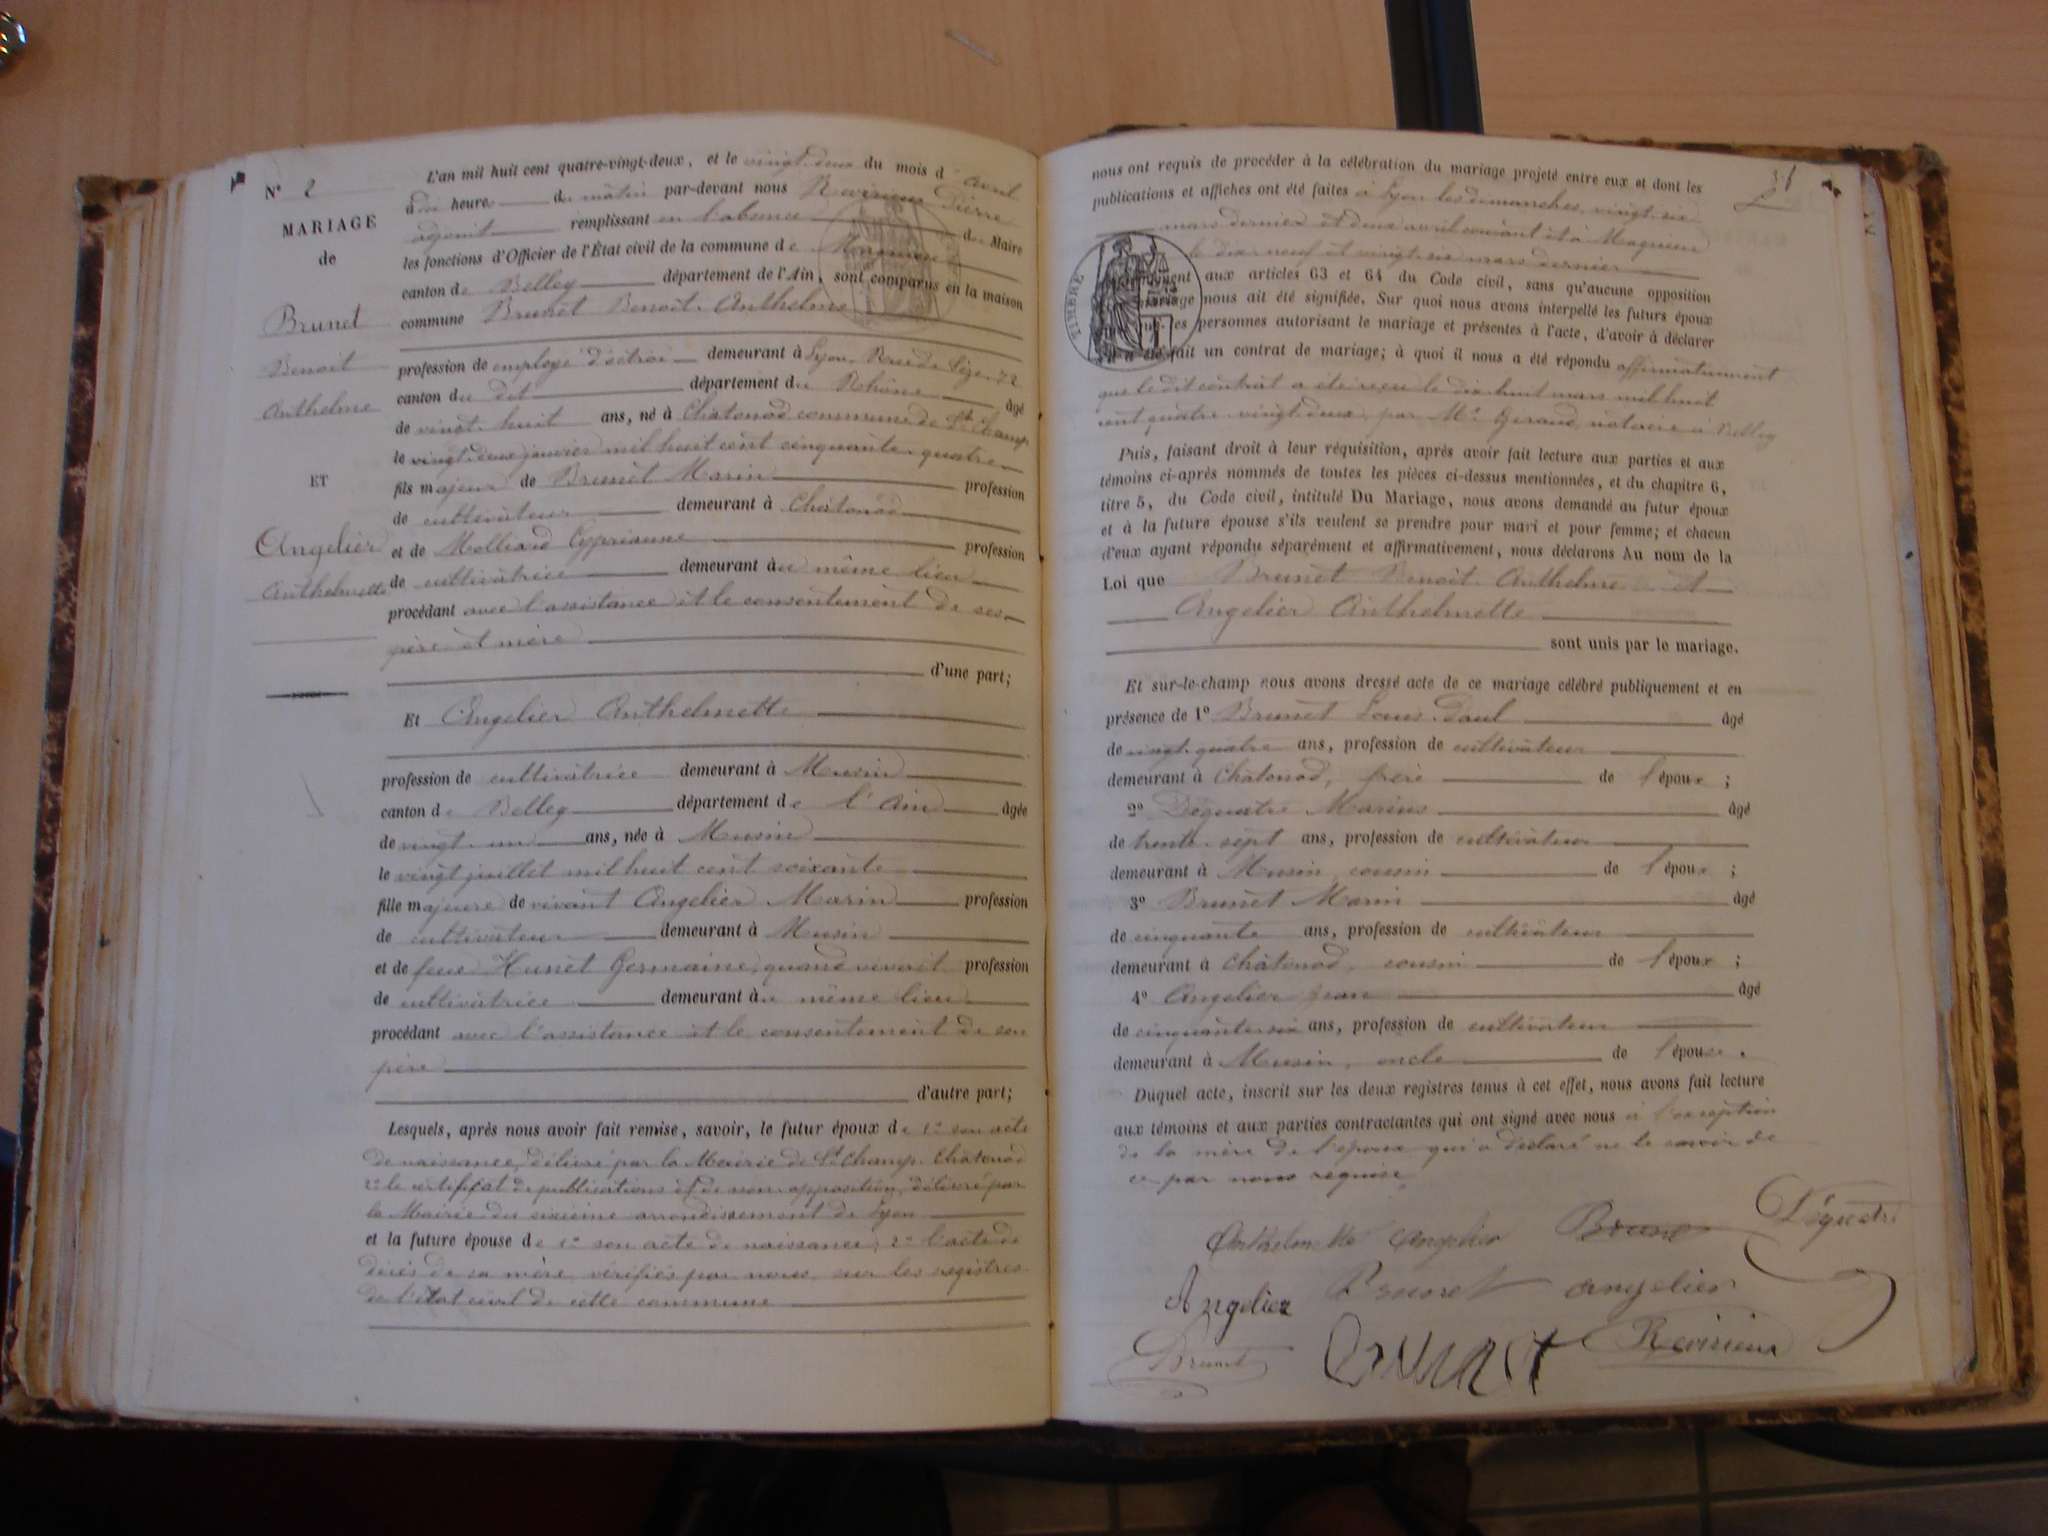 N° 2
MARIAGE
de
Brunet
Benoit
Anthelme
ET
Angelier
Anthelmette
L'an mil huit cent quatre-vingt-deux, et le vingt-deux du mois d'avril
à dix heures du matin par-devant nous Revirieux Pierre
adjoint remplissant en l'absence du Maire
les fonctions d'Officier de l'État civil de la commune de Magnieu
canton de Belley département de l'Ain, sont comparus en la maison
commune Brunet Benoit Anthelme
profession de employé d'octroi demeurant à Lyon, Rue de Sèze, 72
canton du dit département du Rhône âgé
de vingt-huit ans, né à Chatonod commune de St Champ
le vingt-deux janvier mil huit cent cinquante-quatre
fils majeur de Brunet Marin profession
de cultivateur demeurant à Chatonod
et de Molliard Cyprienne profession
de cultivatrice demeurant au même lieu
procédant avec l'assistance et le consentement de ses
père et mère
d'une part;
Et Angelier Anthelmette
profession de cultivatrice demeurant à Musin
canton de Belley département de l'Ain âgée
de vingt-un ans, née à Musin
le vingt juillet mil huit cent soixante
fille majeure de vivant Angelier Marin profession
de cultivateur demeurant à Musin
et de feue Hunet Germaine, quand vivait profession
de cultivatrice demeurant au même lieu
procédant avec l'assistance et le consentement de son
père
d'autre part;
Lesquels, après nous avoir fait remise, savoir, le futur époux de 1° son acte
de naissance, délivré par la Mairie de St Champ-Chatonod
2° le certificat de publications et de non-opposition, délivré par
la Mairie du sixième arrondissement de Lyon
et la future épouse de 1° son acte de naissance; 2° l'acte de
décès de sa mère vérifiés par nous sur les registres
de l'état civil de cette commune
31
nous ont requis de procéder à la célébration du mariage projeté entre eux et dont les
publications et affiches ont été faites à Lyon les dimanches, vingt-six
mars dernier et deux avril courant et à Magnieu
le dix-neuf et vingt-six mars dernier
TIMBRE
aux articles 63 et 64 du Code civil, sans qu'aucune opposition
mariage nous ait été signifiée. Sur quoi nous avons interpellé les futurs époux
les personnes autorisant le mariage et présentes à l'acte, d'avoir à déclarer
s'il a été fait un contrat de mariage; à quoi il nous a été répondu affirmativement
que le dit contrat a été reçu le dix-huit mars mil huit
cent quatre-vingt-deux, par Me Geraud, notaire à Belley
Puis, faisant droit à leur réquisition, après avoir fait lecture aux parties et aux
témoins ci-après nommés de toutes les pièces ci-dessus mentionnées, et du chapitre 6,
titre 5, du Code civil, intitulé Du Mariage, nous avons demandé au futur époux
et à la future épouse s'ils veulent se prendre pour mari et pour femme; et chacun
d'eux ayant répondu séparément et affirmativement, nous déclarons Au nom de la
Loi que Brunet Benoit Anthelme et
Angelier Anthelmette
sont unis par le mariage.
Et sur-le-champ nous avons dressé acte de ce mariage célébré publiquement et en
présence de 1° Brunet Louis Paul âgé
de vingt-quatre ans, profession de cultivateur
demeurant à Chatonod, frère de l'époux;
2° Déquatre Marius âgé
de trente-sept ans, profession de cultivateur
demeurant à Musin, cousin de l'époux;
3° Brunet Marin âgé
de cinquante ans, profession de cultivateur
demeurant à Chatonod, cousin de l'époux;
4° Angelier Jean âgé
de cinquante-six ans, profession de cultivateur
demeurant à Musin, oncle de l'épouse.
Duquel acte, inscrit sur les deux registres tenus à cet effet, nous avons fait lecture
aux témoins et aux parties contractantes qui ont signé avec nous à l'exception
de la mère de l'époux qui a déclaré ne le savoir de
ce par nous requise
Anthelmette Angelier Brunet Déquatre
Angelier Brunet Angelier
Brunet Brunet Revirieux